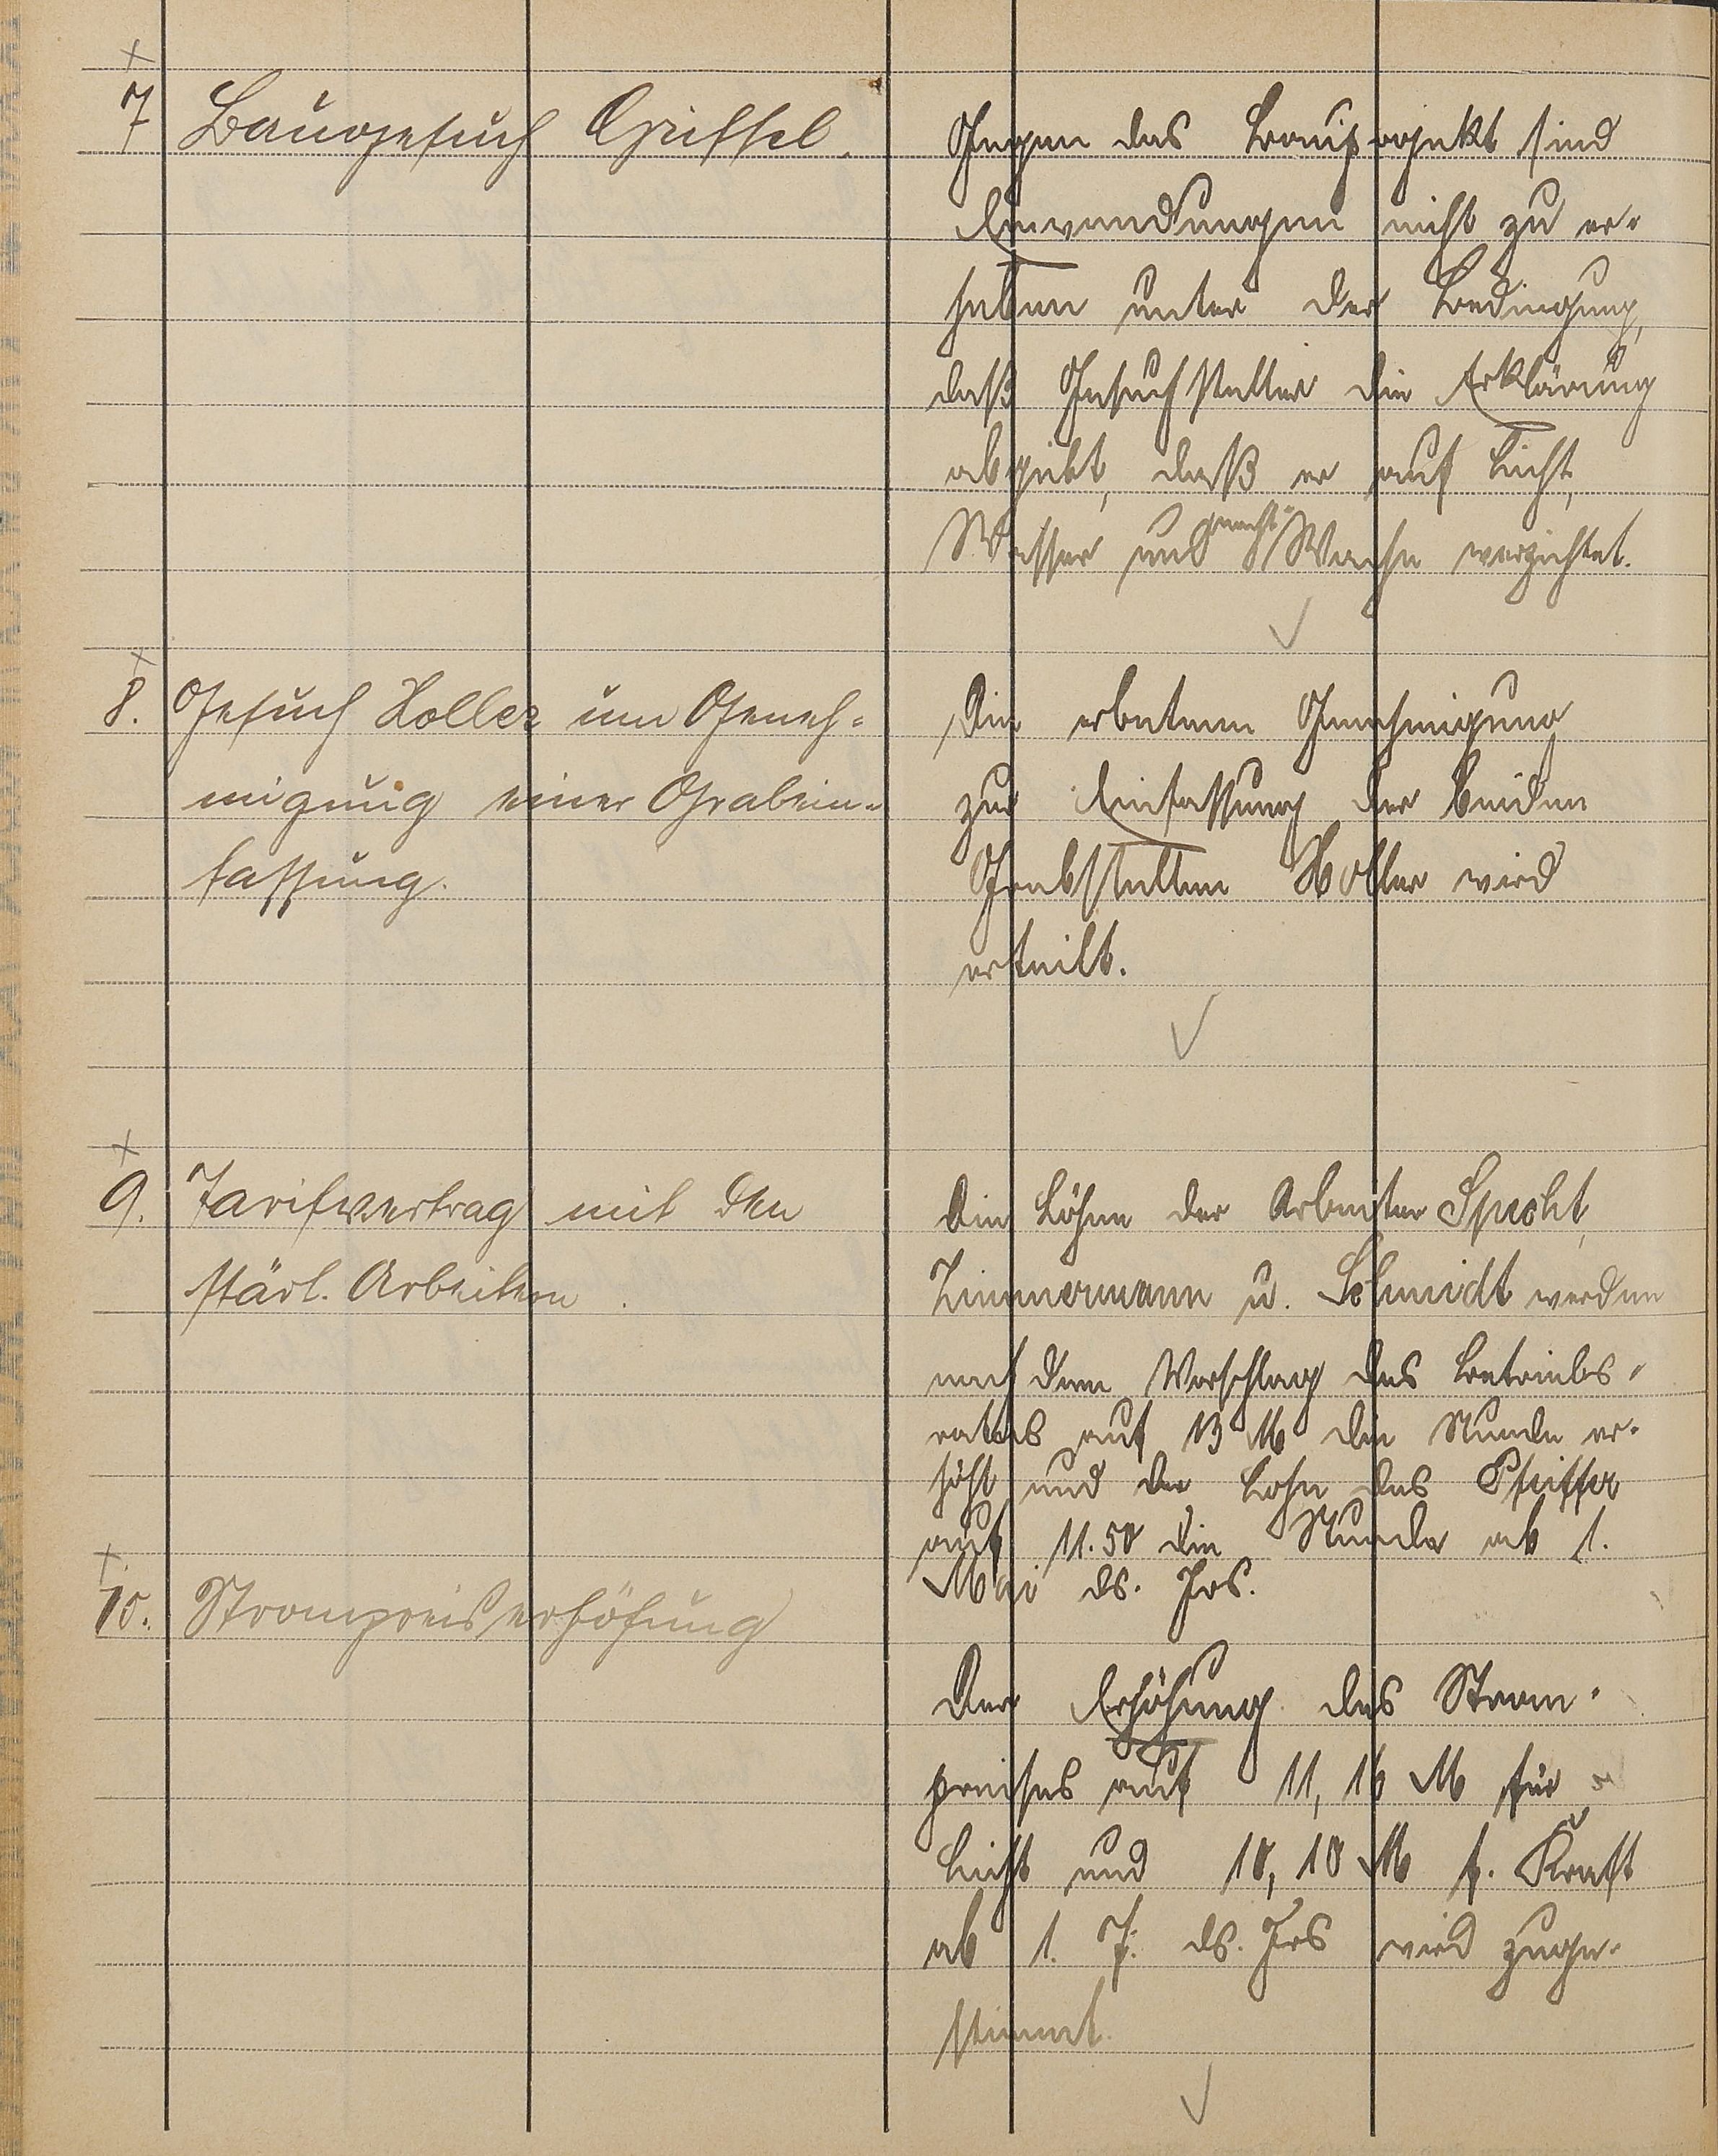 7 Baugesuch Griessel.
Gegen das Bauprojekt sind
Einwendungen nicht zu er-
heben unter der Bedingung,
daß Gesuchsteller die Erklärung
abgibt, daß er auf Licht,
Wasser und Wache verzichtet.
8. Gesuch Holler um Geneh-
migung einer Grabein-
fassung.
Die erbetene Genehmigung
zur Einfassung der beiden
Grabstellen Holler wird
erteilt.
9. Tarifvertrag mit den
städt. Arbeitern.
Die Löhne der Arbeiter Specht,
Zimmermann u. Schmidt werden
nach dem Vorschlag des Betriebs-
rates auf 13 M die Stunde er-
höht und der Lohn des Pfeiffer
auf 11.50 die Stunde ab 1.
Mai ds. Jrs.
10. Strompreiserhöhung
Der Erhöhung des Strom-
preises auf 11,16 M für
Licht und 10,10 M f. Kraft
ab 1. ds. Jrs wird zuge-
stimmt.